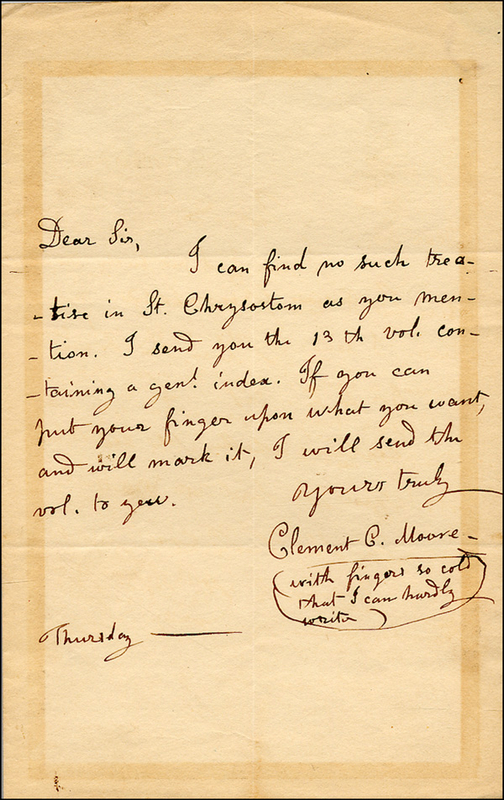 Dear Sir,
I can find no such trea-
-tise in St. Chrysostom as you men-
-tion. I send you the 13th vol. con-
-taining a genl. index. If you can
put your finger upon what you want,
and will mark it, I will send the
vol. to you.
Yours truly
Clement C. Moore-
(with fingers so cold
that I can hardly
write)
Thursday —